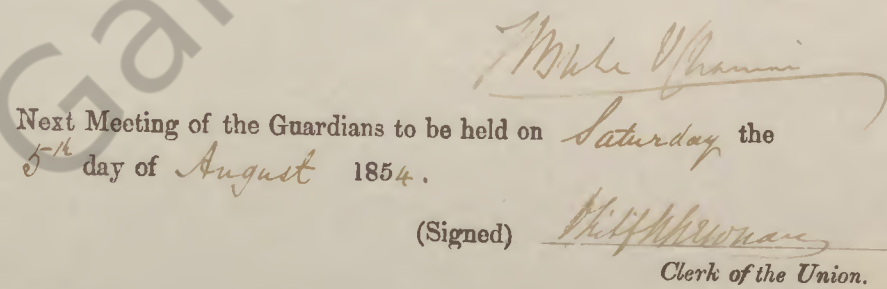 Next Meeting of the Guardians to be held on Saturday the
5th day of August 1854.
(Signed) Philip
Clerk of the Union.